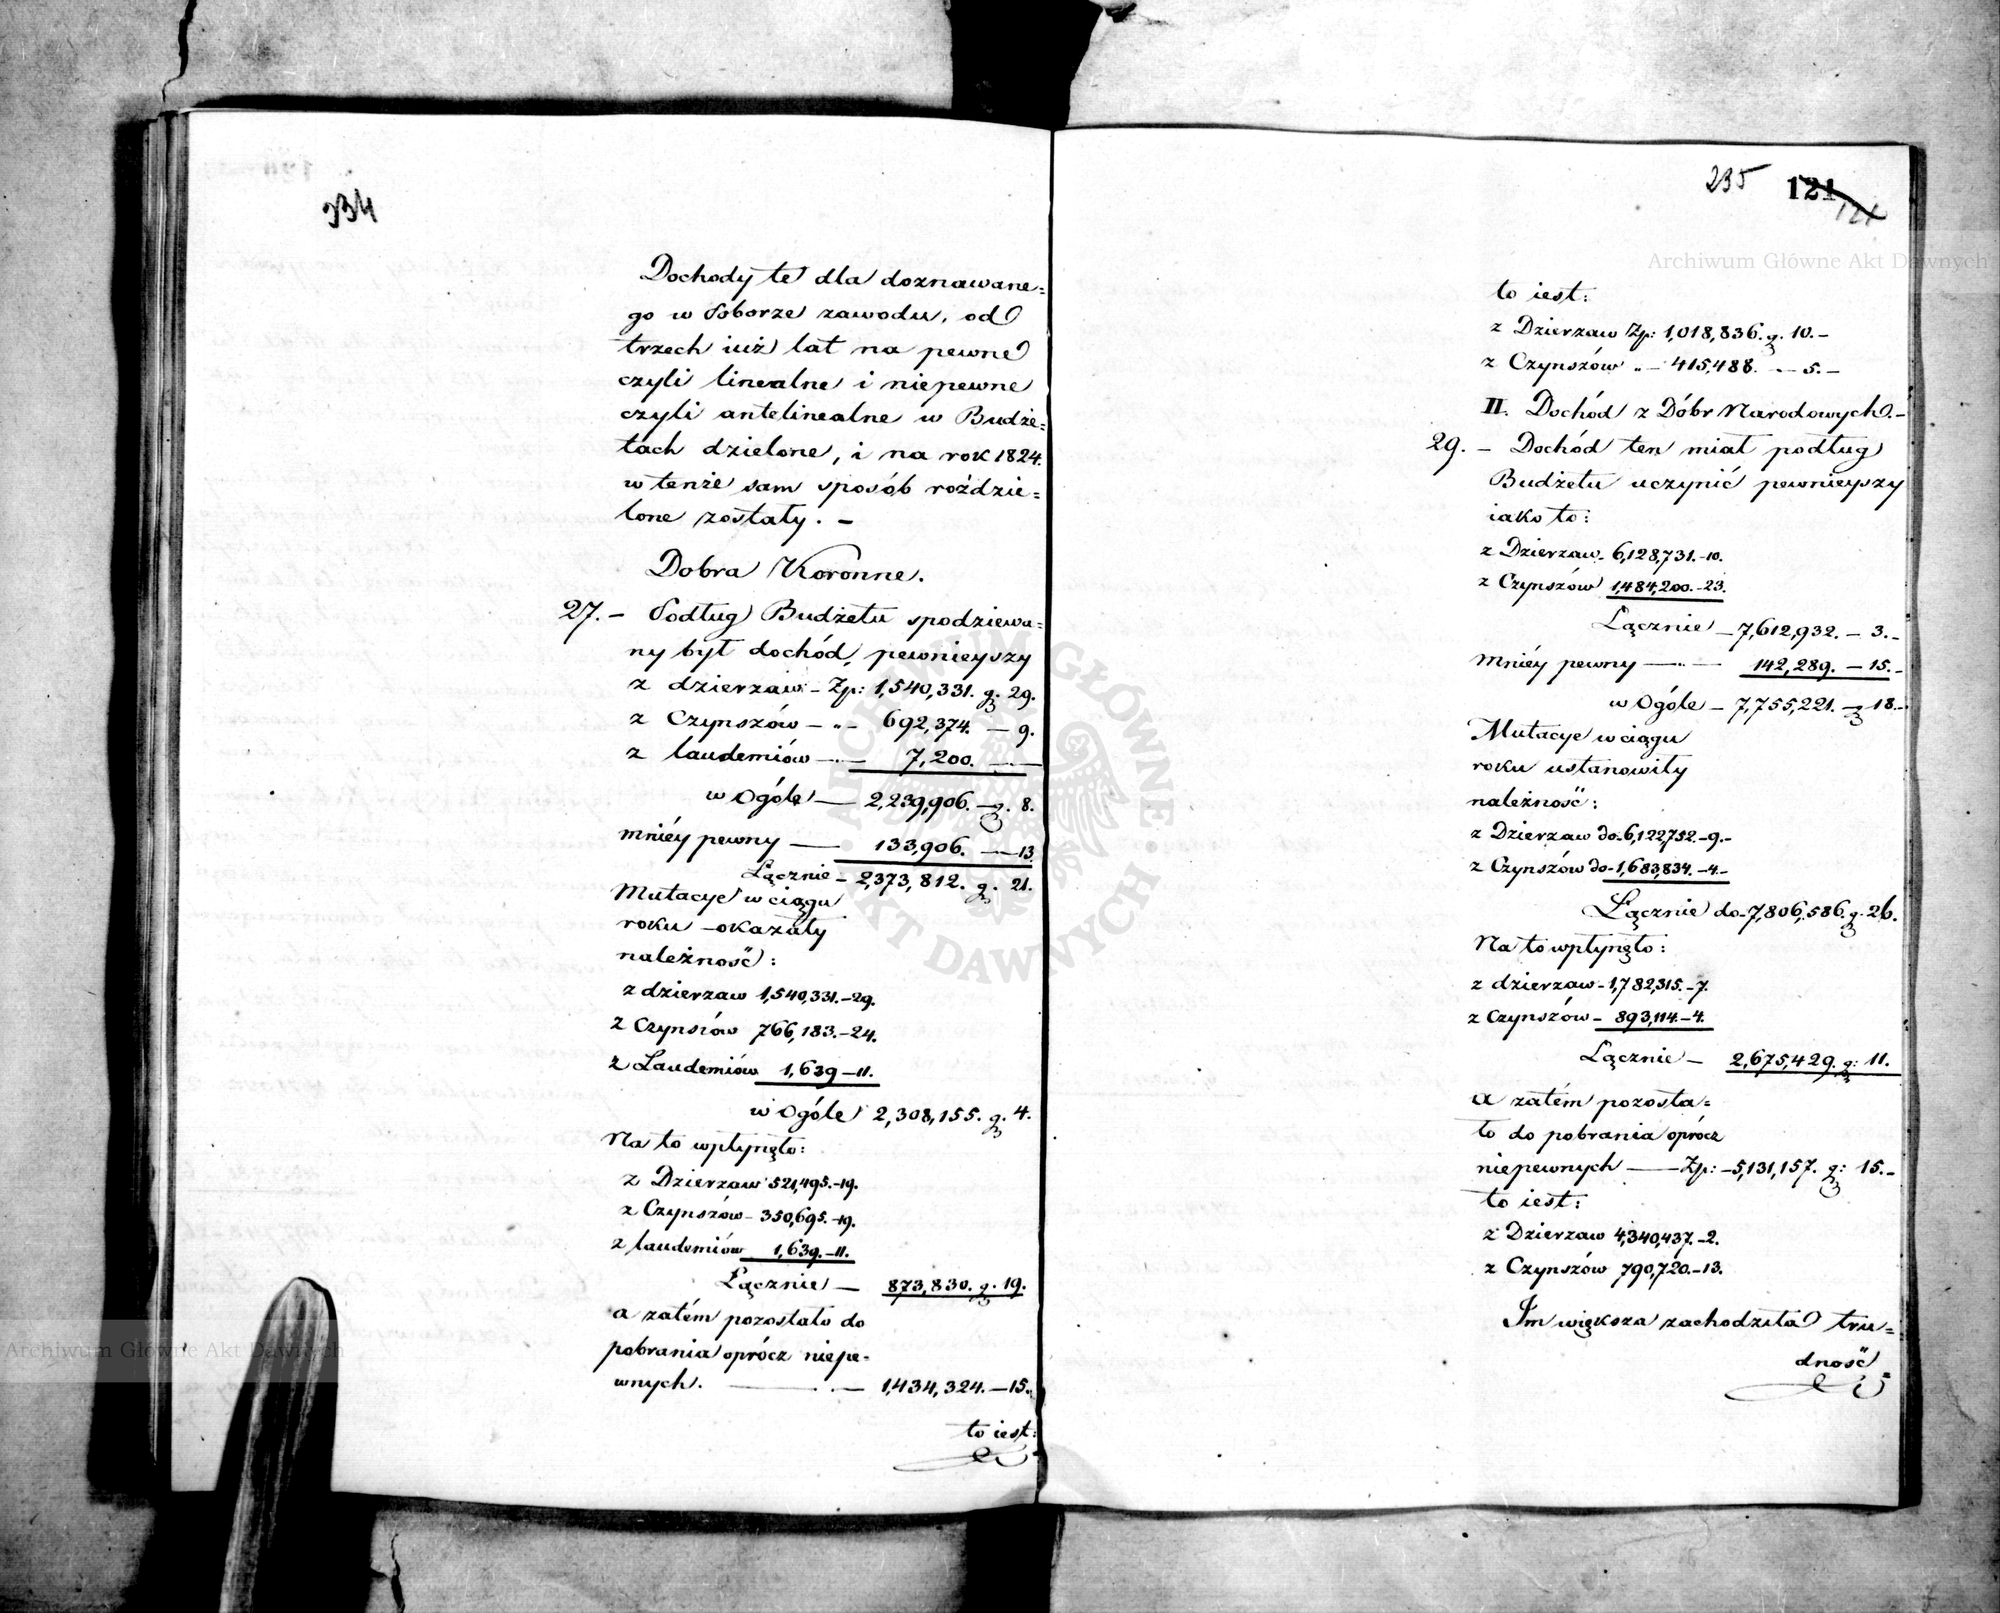 234
Dochody te dla doznawane=
go w Poborze zawodu, od
trzech iuż lat na pewne
czyli linealne i niepewne
czyli antelinealne w Budże=
tach dzielone, i na rok 1824.
w tenże sam sposób rozdzie=
lone zostały. –
Dobra Koronne.
27. – Podług Budżetu spodziewa=
ny był dochód, pewnieyszy
z dzierzaw – Zp: 1,540,331. g. 29.
z Czynszów – „ – 692,374. — 9.
z laudemiów — 7,200. —
w Ogóle — 2,239,906. – g. 8.
mniéy pewny — 133,906. — 13.
Łącznie – 2,373,812. g. 21.
Mutacye w ciągu
roku okazały
należność:
z dzierzaw 1,540,331. – 29.
z Czynszów 766,183. – 24.
z Laudemiów 1,639 – 11.
w Ogóle 2,308,155. g. 4.
Na to wpłynęło:
z Dzierzaw 521,495. – 19.
z Czynszów – 350,695. – 19.
z laudemiów 1,639. – 11.
Łącznie — 873,830. g. 19.
a zatém pozostało do
pobrania oprócz niepe=
wnych. — 1,434,324. – 15.
to iest:
235 121
Archiwum Główne Akt Dawnych
to iest:
z Dzierzaw Zp: 1,018,836. g. 10. –
z Czynszów „ – 415,488. — 5. –
II. Dochód z Dóbr Narodowych. –
29. – Dochód ten miał podług
Budżetu uczynić pewnieyszy
iako to:
z Dzierzaw – 6,128,731. – 10.
z Czynszów 1,484,200. – 23.
Łącznie – 7,612,932. – 3. –
mniéy pewny — „ — 142,289. – 15. –
w Ogóle – 7,755,221. – g 18. –
Mutacye w ciągu
roku ustanowiły
należność:
z Dzierzaw do – 6,122,752. – 9. –
z Czynszów do – 1,683,834. – 4. –
Łącznie do – 7,806,586. g. 26.
Na to wpłynęło:
z dzierzaw – 1,782,315. – 7.
z Czynszów – 893,114. – 4.
Łącznie – 2,675,429. g: 11.
a zatém pozosta=
ło do pobrania oprócz
niepewnych — Zp: – 5,131,157. g: 15. –
to iest:
z Dzierzaw 4,340,437. – 2.
z Czynszów 790,720. – 13.
Im większa zachodziła tru=
dność
ARCHIWUM GŁÓWNE AKT DAWNYCH
Archiwum Główne Akt Dawnych